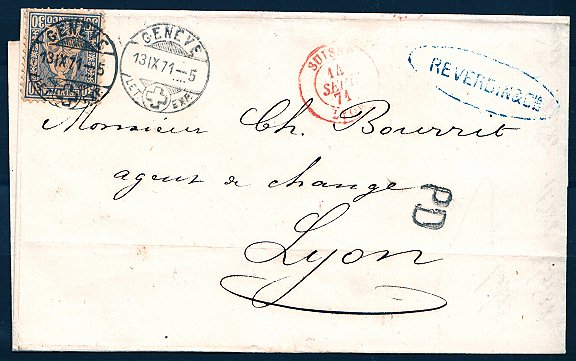 GENÈVE
13 IX 71-5
LETT. EXP.
GENÈVE
13 IX 71-5
LETT. EXP.
30
SUISSE
14
SEPT
71
REVERDIN & Cie
Monsieur Ch. Bourrit
agent de change
PD
Lyon